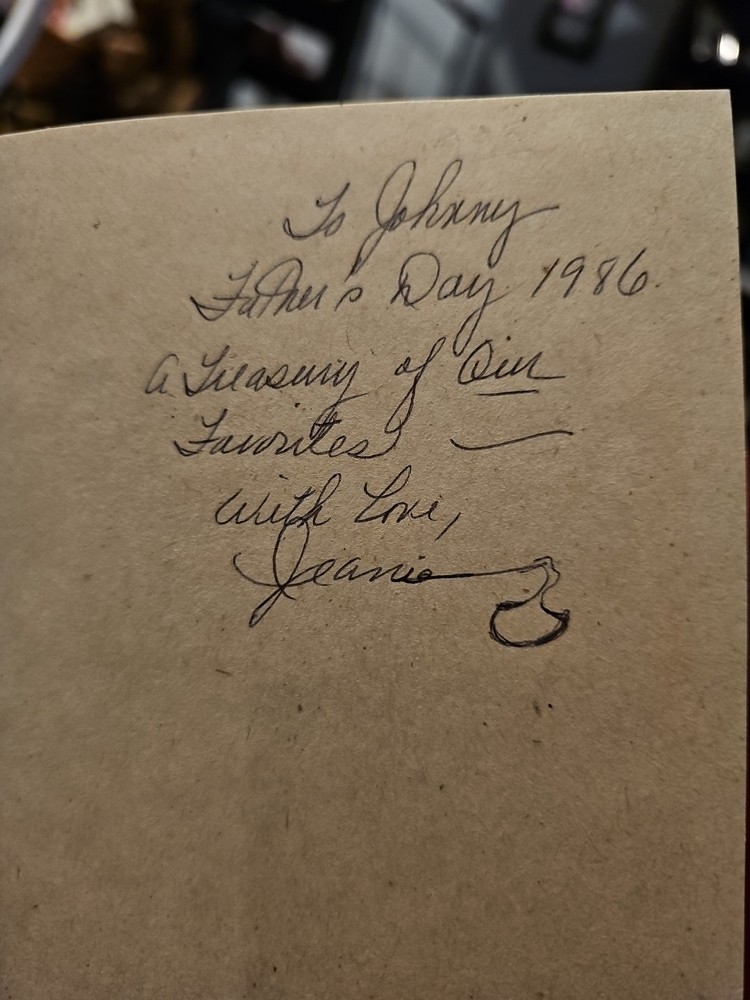 To Johnny
Father's Day 1986.
A Treasury of Our
Favorites —
With Love,
Jeanie